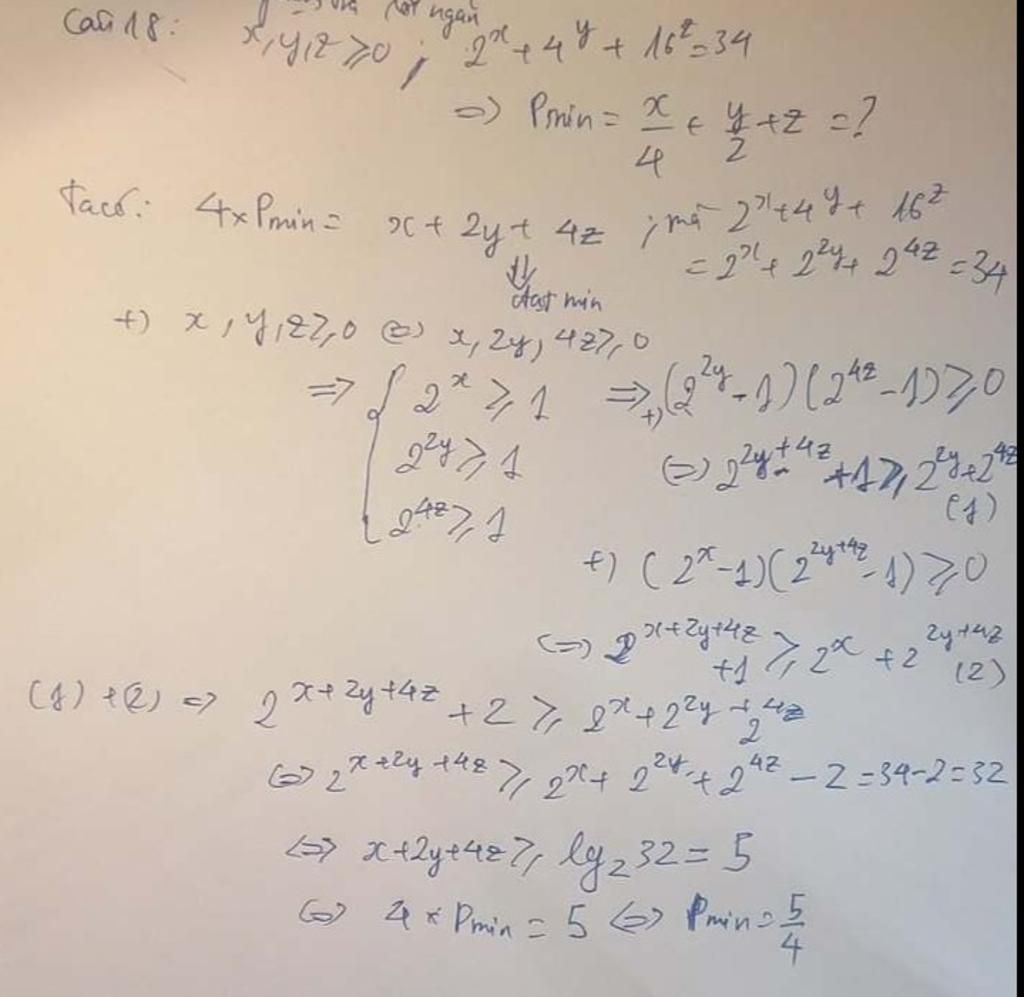 ngắn
Câu 18: x,y,z ≥ 0 ; 2^x + 4^y + 16^z = 34
=> Pmin = x/4 + y/2 + z = ?
Ta có: 4×Pmin = x + 2y + 4z ; mà 2^x + 4^y + 16^z
= 2^x + 2^2y + 2^4z = 34
⇓
đạt min
+) x, y, z ≥ 0 <=> x, 2y, 4z ≥ 0
=> { 2^x ≥ 1 => +) (2^2y - 1)(2^4z - 1) ≥ 0
2^2y ≥ 1 <=> 2^2y+4z + 1 ≥ 2^2y + 2^4z
(1)
2^4z ≥ 1
+) (2^x - 1)(2^2y+4z - 1) ≥ 0
<=> 2^x+2y+4z + 1 ≥ 2^x + 2^2y+4z (2)
(1) + (2) => 2^x+2y+4z + 2 ≥ 2^x + 2^2y + 2^4z
<=> 2^x+2y+4z ≥ 2^x + 2^2y + 2^4z - 2 = 34 - 2 = 32
<=> x+2y+4z ≥ lg₂32 = 5
<=> 4 × Pmin = 5 <=> Pmin = 5/4